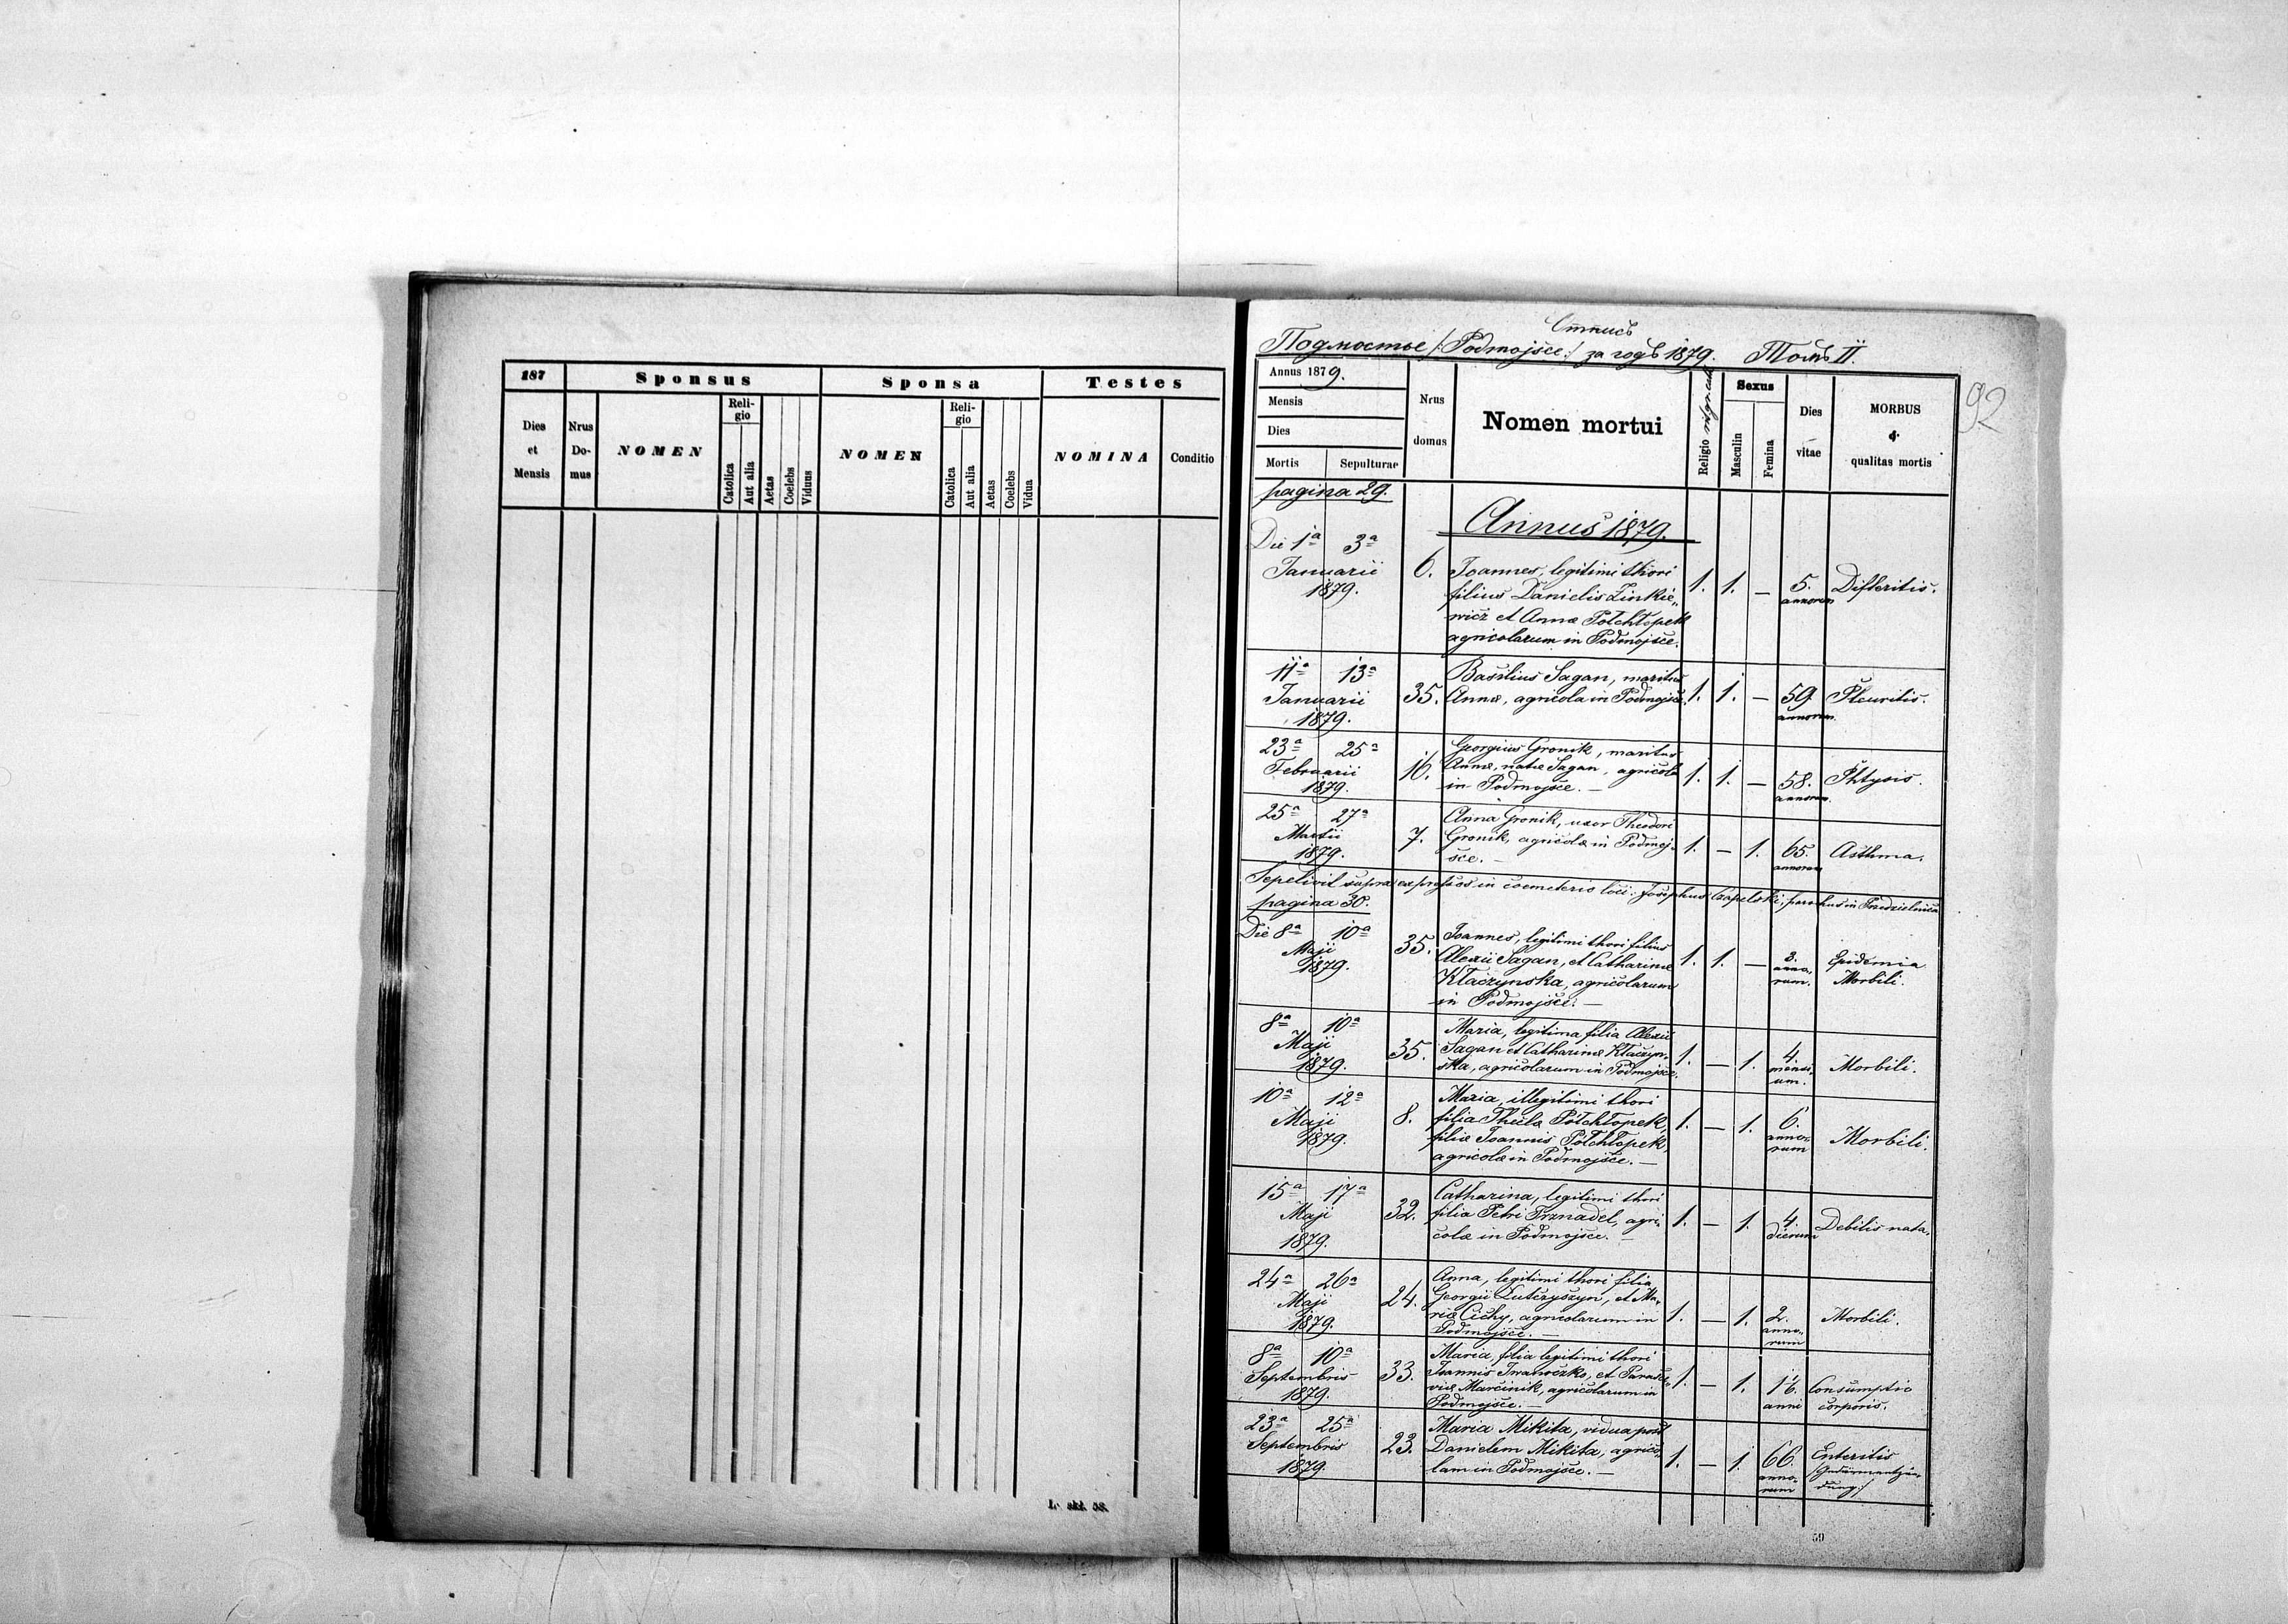 187
Sponsus
Sponsa
Testes
Dies
et
Mensis
Nrus
Do-
mus
NOMEN
Reli-
gio
Catolica
Aut alia
Aetas
Coelebs
Viduus
NOMEN
Reli-
gio
Catolica
Aut alia
Aetas
Coelebs
Vidua
NOMINA
Conditio
Подмостье /:Podmojsce:/ за годъ 1879. Томъ II.
92
Annus 1879.
Mensis
Dies
Mortis
Sepulturae
Nrus
domus
Nomen mortui
Religio
Sexus
Masculin
Femina
Dies
vitae
MORBUS
et
qualitas mortis
pagina 29.
Annus 1879.
Die 1a 3a
Januarii
1879.
6.
Joannes, legitimi thori
filius Danielis Zinkie„
wicz et Annæ Połchłopek
agricolarum in Podmojsce.
1. 1. —
5.
annorum
Difteritis.
11a 13a
Januarii
1879.
35.
Basilius Sagan, maritus
Annæ, agricola in Podmojsce.
1. 1. —
59
annorum.
Pleuritis.
23a 25a
Februarii
1879.
16.
Georgius Gronik, maritus
Annæ, natæ Sagan, agricola
in Podmojsce. —
1. 1. —
58.
annorum.
Phtysis.
25a 27a
Martii
1879.
7.
Anna Gronik, uxor Theodori
Gronik, agricolæ in Podmoj-
sce. —
1. — 1.
65.
annorum
Asthma.
Sepelivit supra expressos in coemeterio loci: Josephus Czapelski, parochus in Przedzielnica
pagina 30.
Die 8a 10a
Maji
1879.
35.
Joannes, legitimi thori filius
Alexii Sagan, et Catharinæ
Kłaczynska, agricolarum
in Podmojsce. —
1. 1. —
3.
anno„
rum.
Epidemia
Morbili.
8a 10a
Maji
1879.
35.
Maria, legitima filia Alexii
Sagan et Catharinæ Kłaczyn„
ska, agricolarum in Podmojsce.
1. — 1.
4.
mensi„
um.
Morbili.
10a 12a
Maji
1879.
8.
Maria, illegitimi thori
filia Theclæ Połchłopek,
filiæ Joannis Połchłopek,
agricolæ in Podmojsce. —
1. — 1.
6.
anno„
rum
Morbili.
15a 17a
Maji
1879.
32.
Catharina, legitimi thori
filia Petri Trznadel, agri„
colæ in Podmojsce. —
1. — 1.
4.
dierum
Debilis nata.
24a 26a
Maji
1879.
24.
Anna, legitimi thori filia
Georgii Lutczyszyn, et Ma„
riæ Cichy, agricolarum in
Podmojsce. —
1. — 1.
2.
anno„
rum
Morbili.
8a 10a
Septembris
1879.
33.
Maria, filia legitimi thori
Joannis Iwaneczko, et Parasce„
viæ Marcinik, agricolarum in
Podmojsce. —
1. — 1.
anni
Consumptio
corporis.
23a 25a
Septembris
1879.
23.
Maria Mikita, vidua post
Danielem Mikita, agrico„
lam in Podmojsce. —
1. — 1.
66.
anno„
rum
Enteritis
/:Gedärmentzün„
dung:/
59